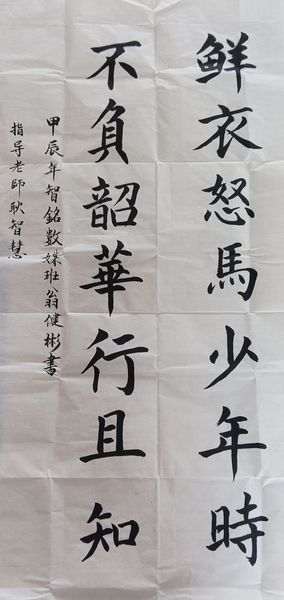 鲜衣怒馬少年時
不負韶華行且知
甲辰年智銘數媒班翁健彬書
指导老師耿智慧